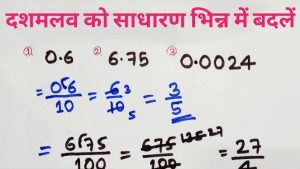 दशमलव को साधारण भिन्न में बदलें
① 0.6 ② 6.75 ③ 0.0024
= 06/10 = 6/10 3 5 = 3/5
= 675/100 = 675/100 135 27 = 27/4